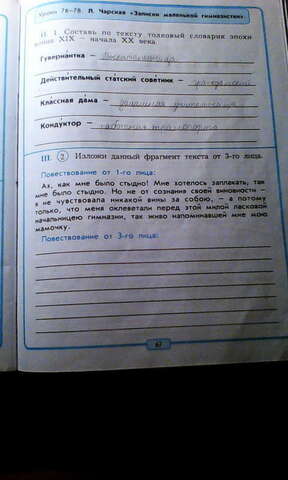 Уроки 76–78. Л. Чарская «Записки маленькой гимназистки»
II. 1. Составь по тексту толковый словарик эпохи
конца XIX — начала XX века.
Гувернантка — воспитательница
Действительный статский советник —
Классная дама —
Кондуктор — работник
III. 2 Изложи данный фрагмент текста от 3-го лица.
Повествование от 1-го лица:
Ах, как мне было стыдно! Мне хотелось заплакать, так
мне было стыдно! Но не от сознания своей виновности —
я не чувствовала никакой вины за собою, — а потому
только, что меня оклеветали перед этой милой ласковой
начальницею гимназии, так живо напоминавшей мне мою
мамочку.
Повествование от 3-го лица: